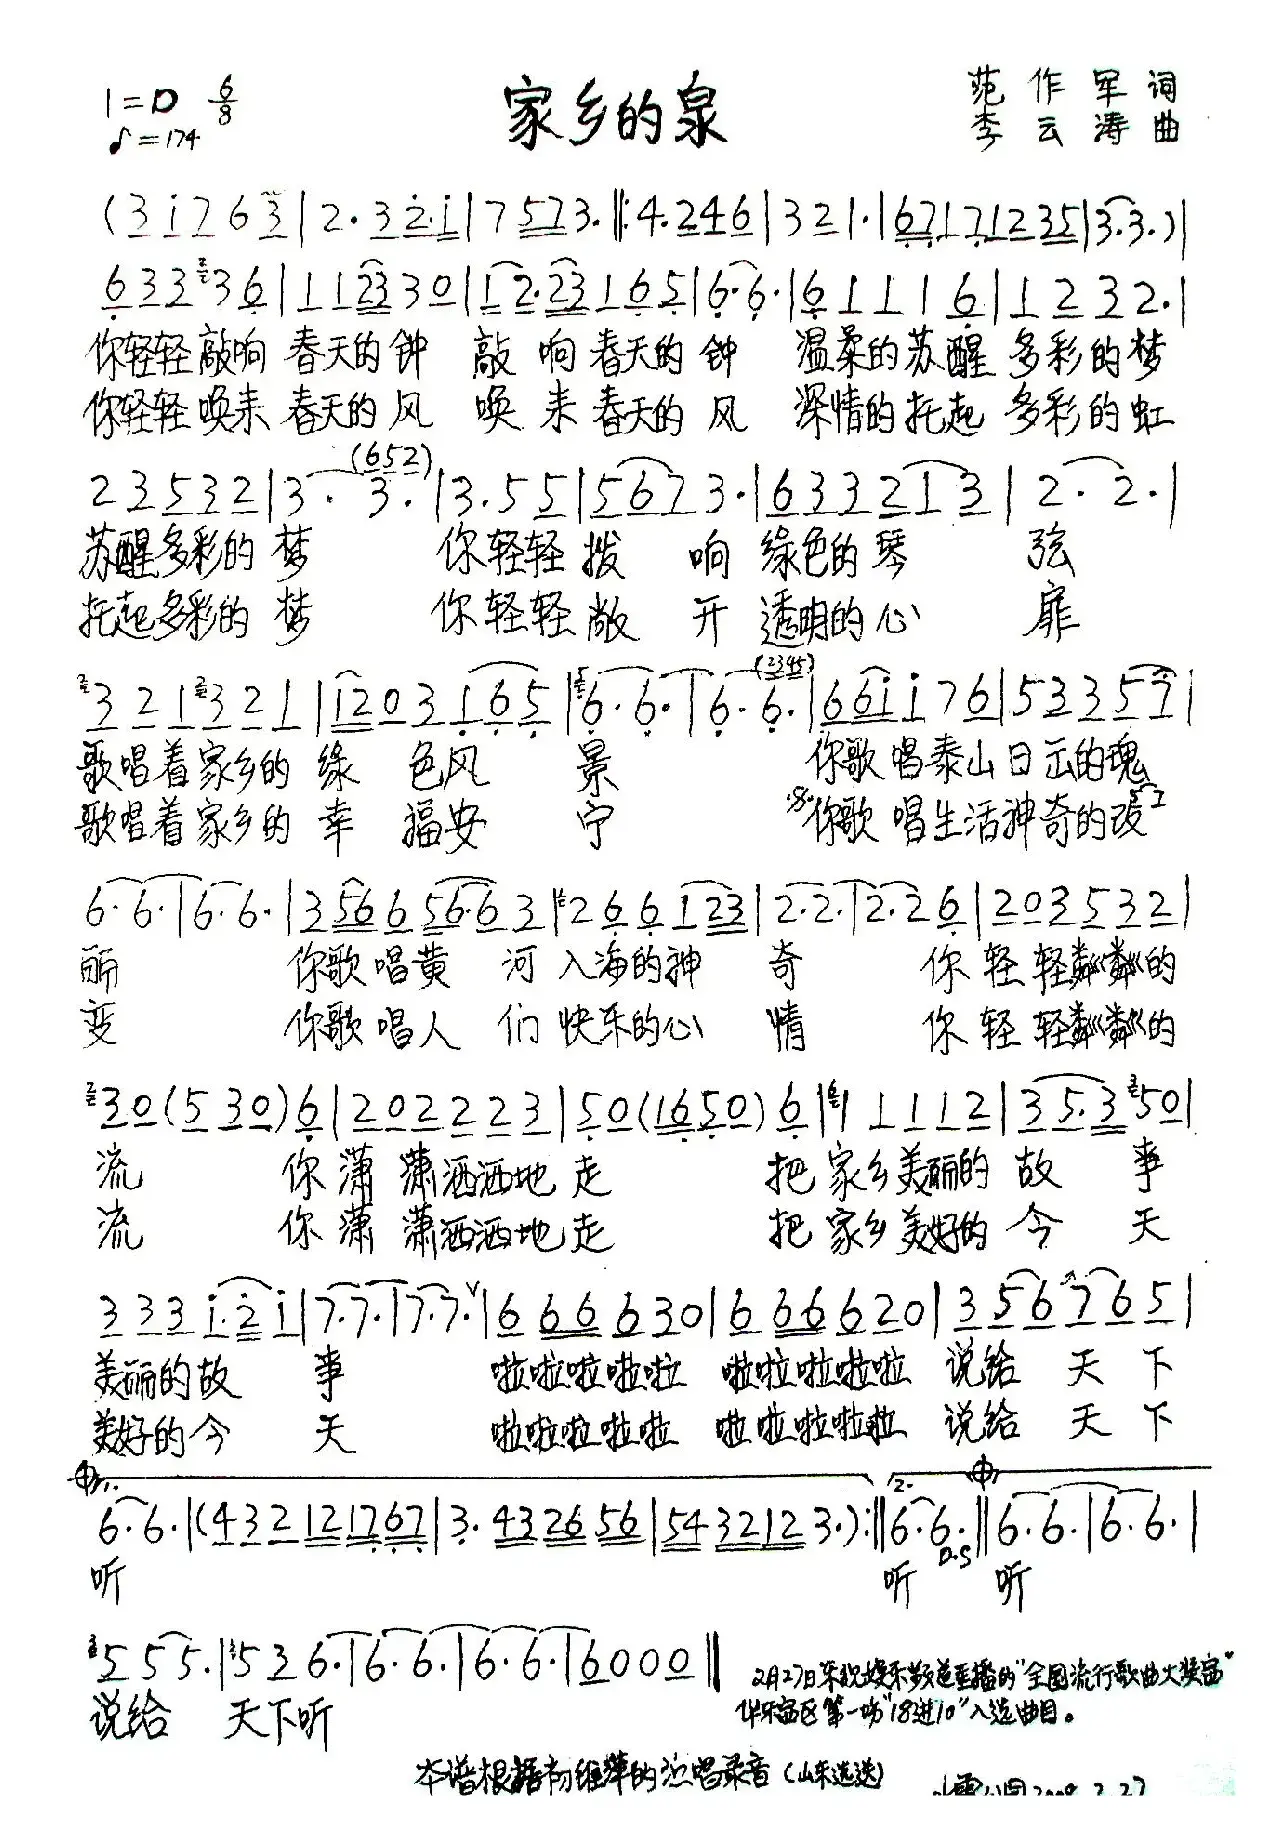 1=D 6/8 家乡的泉 范作军 词
♪=174 李云涛 曲
(3 i 7 6 3 | 2· 3 2· i | 7 5 7 3· ‖: 4· 2 4 6 | 3 2 1· | 6 7 1 7 1 2 3 5 | 3· 3·) |
6 3 3 3 6 | 1 1 2 3 3 0 | 1 2· 2 3 1 6 5 | 6· 6· | 6 1 1 1 6 | 1 2 3 2· |
你轻轻敲响 春天的钟 敲 响春天的 钟 温柔的苏醒 多彩的梦
你轻轻唤来 春天的风 唤 来春天的 风 深情的托起 多彩的虹
2 3 5 3 2 | 3· 3· (6 5 2) | 3· 5 5 | 5 6 7 3· | 6 3 3 2 1 3 | 2· 2· |
苏醒多彩的 梦 你轻轻 拨 响 绿色的琴 弦
托起多彩的 梦 你轻轻 敞 开 透明的心 扉
3 2 1 3 2 1 | 1 2 0 3 1 6 5 | 6· 6· | 6· 6· (2 3 4 5) | 6 6 i i 7 6 | 5 3 3 5 7 |
歌唱着家乡的 绿 色风 景 你歌唱泰山日出的瑰
歌唱着家乡的 幸 福安 宁 你歌唱生活神奇的改
6· 6· | 6· 6· | 3 5 6 6 5 6· 6 3 | 2 6 6 1 2 3 | 2· 2· | 2· 2 6 | 2 0 3 5 3 2 |
丽 你歌唱黄 河 入海的神 奇 你 轻 轻粼粼的
变 你歌唱人 们 快乐的心 情 你 轻 轻粼粼的
3 0 (5 3 0) 6 | 2 0 2 2 2 3 | 5 0 (1 6 5 0) 6 | 1 1 1 1 2 | 3 5· 3 5 0 |
流 你 潇 潇洒洒地 走 把 家乡美丽的 故 事
流 你 潇 潇洒洒地 走 把 家乡美好的 今 天
3 3 3 i· 2 i | 7· 7· | 7· 7· ∨ | 6 6 6 6 3 0 | 6 6 6 6 2 0 | 3 5 6 7 6 5 |
美丽的故 事 啦啦啦啦啦 啦啦啦啦啦 说给 天 下
美好的今 天 啦啦啦啦啦 啦啦啦啦啦 说给 天 下
1. 2.
6· 6· | (4 3 2 1 2 1 7 6 7 | 3· 4 3 2 6 5 6 | 5 4 3 2 1 2 3·) :‖ 6· 6· ‖ 6· 6· | 6· 6· |
D.S
听 听 听
5 5 5· | 5 3 6· | 6· 6· | 6· 6· | 6 0 0 0 ‖
说给 天下听
2月27日东视娱乐频道直播的"全国流行歌曲大奖赛"
华东赛区第一场"18进10"入选曲目。
本谱根据 的演唱录音(山东选送)